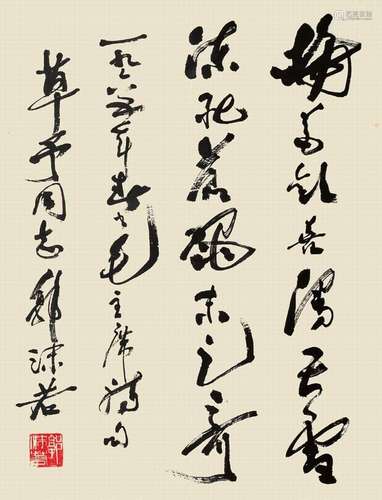 梅花欢喜漫天雪
冻死苍蝇未足奇
一九六五年书毛主席诗句
草予同志 郭沫若
郭沫若